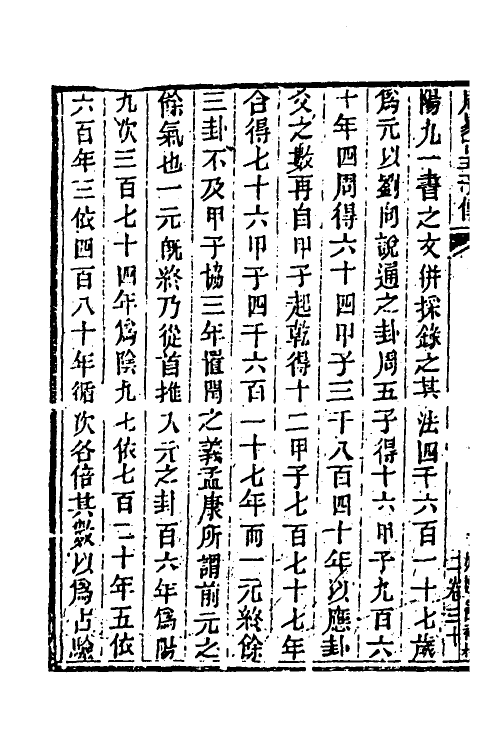 陽九一書之文併採錄之其法四千六百一十七歲
爲元以劉向說通之卦周五子得十六甲子九百六
十年四周得六十四甲子三千八百四十年以應卦
爻之數再自甲子起乾得十二甲子七百七十七年
合得七十六甲子四千六百一十七年而一元終餘
三卦不及甲子協三年惟閏之義孟康所謂前元之
餘氣也一元旣終乃從首推入元之卦百六年爲陽
九次三百七十四年爲陰九七依七百二十年五依
六百年三依四百八十年循次各倍其數以爲占驗